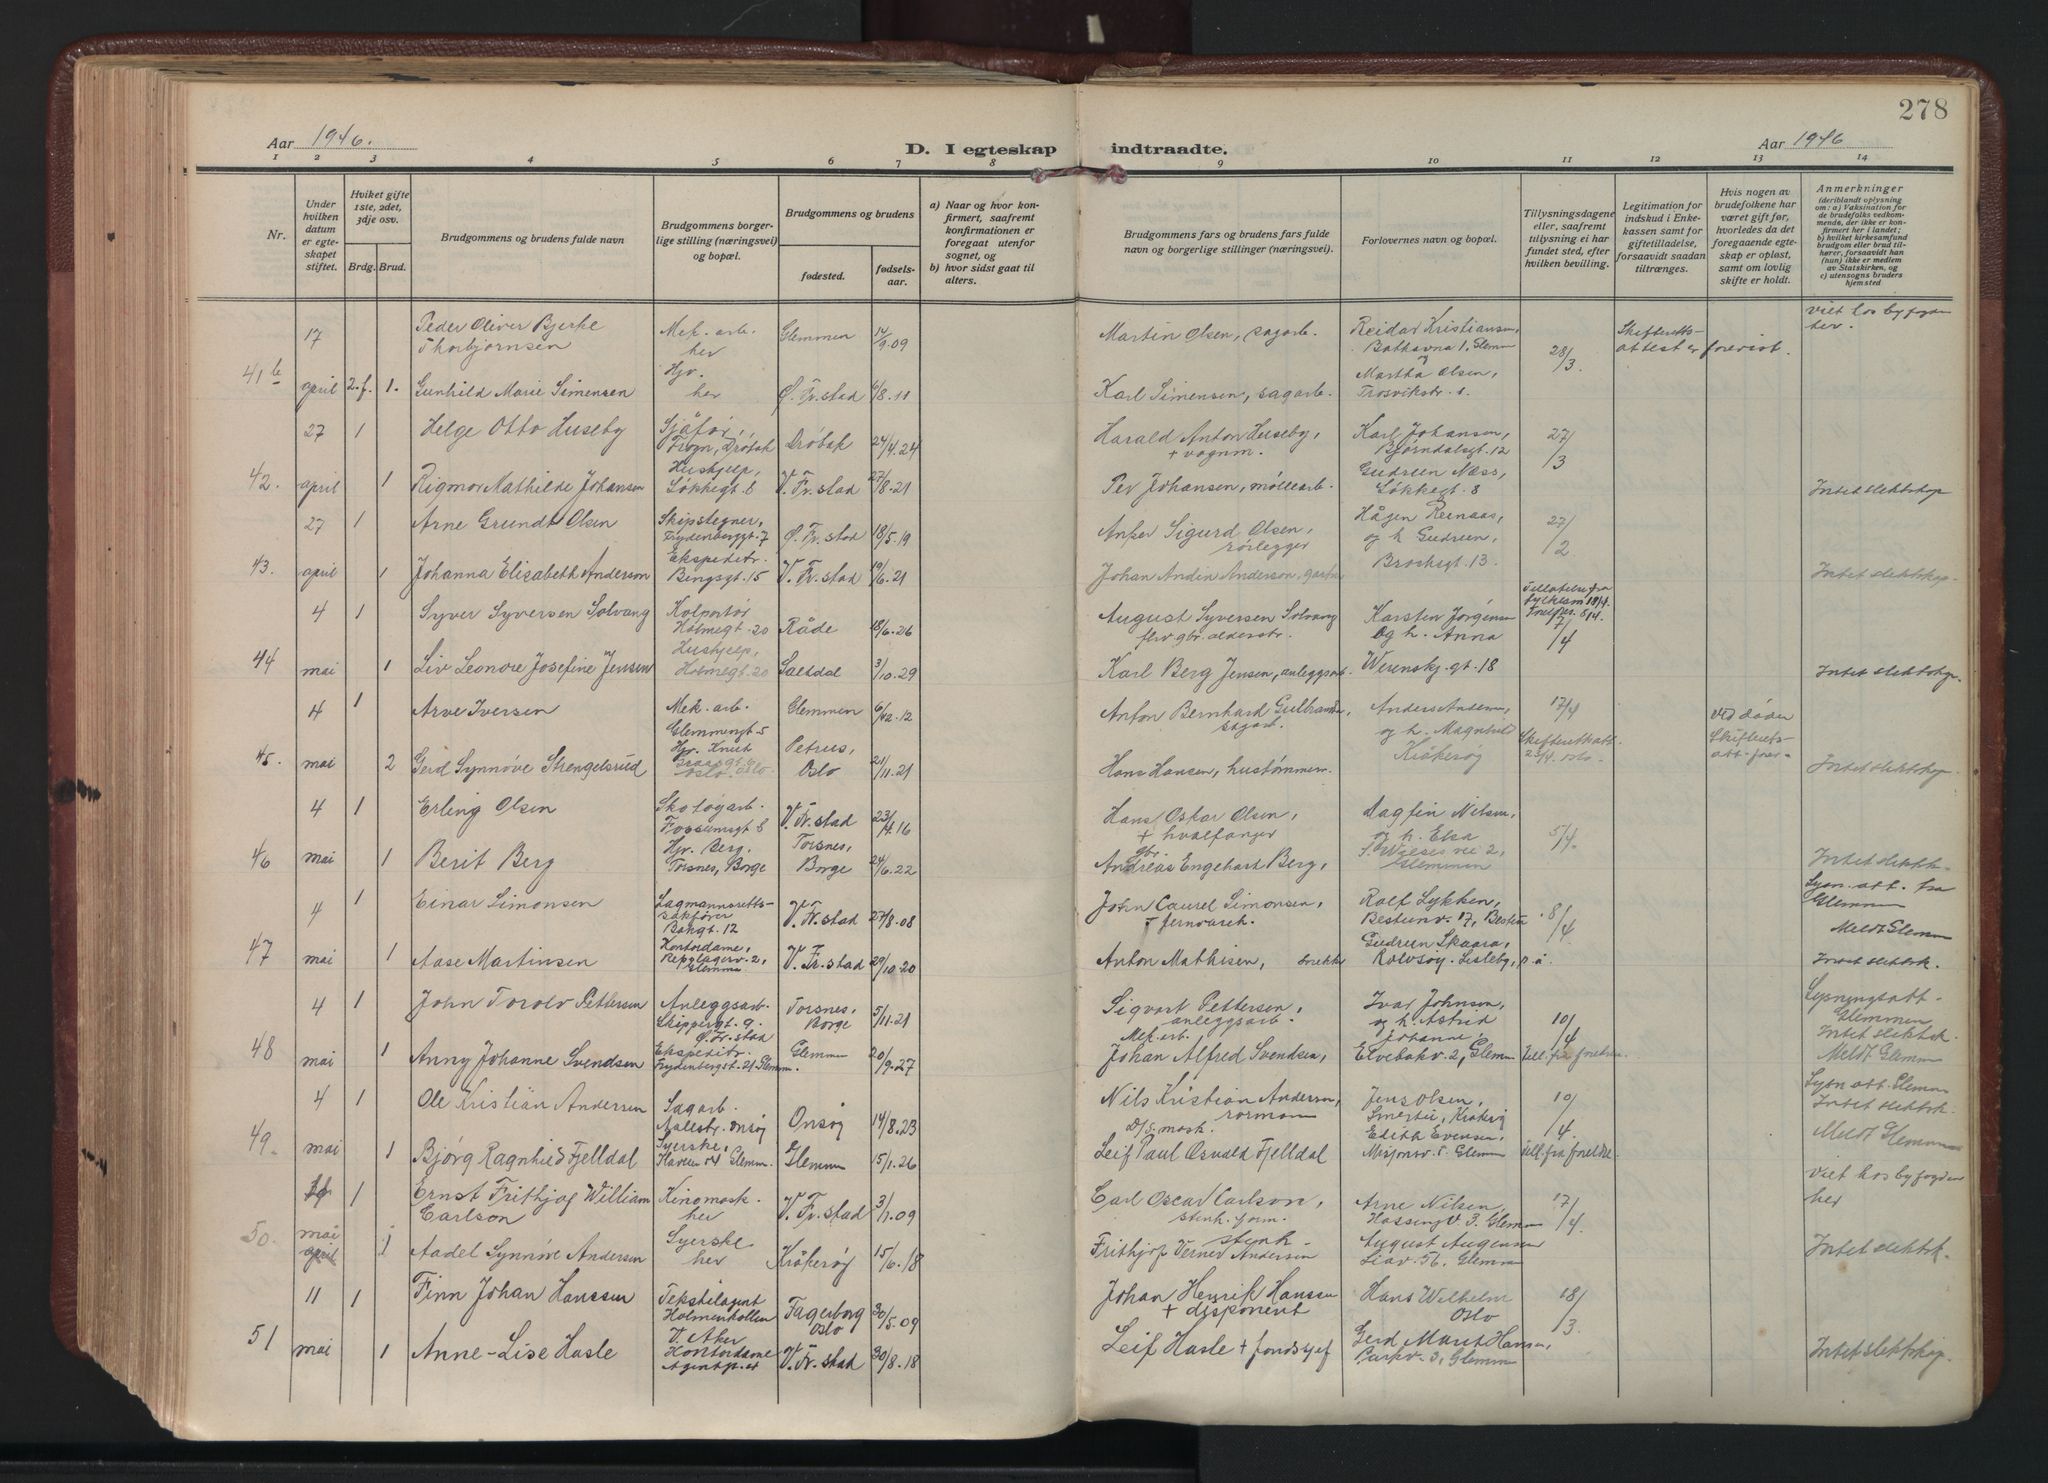 278
Aar 1946.
D. I egteskap indtraadte.
Aar 1946
1 2 3 4 5 6 7 8 9 10 11 12 13 14
Nr.
Under hvilken datum er egteskapet stiftet.
Hviket gifte 1ste, 2det, 3dje osv.
Brdg. Brud.
Brudgommens og brudens fulde navn
Brudgommens borgerlige stilling (næringsvei) og bopæl.
Brudgommens og brudens
fødested.
fødselsaar.
a) Naar og hvor konfirmert, saafremt konfirmationen er foregaat utenfor sognet, og
b) hvor sidst gaat til alters.
Brudgommens fars og brudens fars fulde navn og borgerlige stillinger (næringsvei).
Forlovernes navn og bopæl.
Tillysningsdagene eller, saafremt tillysning ei har fundet sted, efter hvilken bevilling.
Legitimation for indskud i Enkekassen samt for giftetilladelse, forsaavidt saadan tiltrænges.
Hvis nogen av brudefolkene har været gift før, hvorledes da det foregaaende egteskap er opløst, samt om lovlig skifte er holdt.
Anmerkninger (deriblandt oplysning om: a) Vaksination for de brudefolks vedkommende, der ikke er konfirmert her i landet; b) hvilket kirkesamfund brudgom eller brud tilhører, forsaavidt han (hun) ikke er medlem av Statskirken, og c) utensogns bruders hjemsted
41b 17 april 2.f. 1.
Peder Oliver Bjerke Thorbjørnsen Mek. arb. her Glemmen 14/9.09 Martin Olsen, sagarb. Reidar Kristiansen, Bathavna 1, Glemm 28/3 Skifteretts- attest er forevist. viet hos byfogden her.
Gunhild Marie Simensen Hjv. her Ø. Fr.stad 6/8.11 Karl Simensen, sagarb. og Martha Olsen, Trosvikstr. 1.
42. 27 april 1 1
Helge Otto Huseby Sjåfør, Frogn, Drøbak Drøbak 24/4.24 Harald Anton Huseby, + vognm. Karl Johansen, Bjørndalsgt. 12 27/3
Rigmor Mathilde Johansen Hushjelp, Løkkegt. 8 V. Fr.stad 27/8.21 Per Johansen, møllearb. Gudrun Næss, Løkkegt. 8 Intet slektskap
43. 27 april 1 1
Arne Grundt Olsen Skipstegner, Frydenberggt. 7 Ø. Fr.stad 18/5.19 Anker Sigurd Olsen, rørlegger Hågen Reinaas, og h. Gudrun, 27/2
Johanna Elisabeth Anderson Ekspeditr. Bingsgt. 15 V. Fr.stad 19/6.21 Johan Andin Anderson, gartn. Brochsgt. 13. Intet slektskap.
44 4 mai 1 1
Syver Syversen Solvang Kolportør Holmegt. 20 Råde 18/6.26 August Syversen Solvang flrv. gbr. alderstr. Karsten Jørgensen Og h. Anna Tillatelse fra fylkesm. 18/4. 7/4
Liv Leonore Josefine Jensen Hushjelp, Holmegt. 20 Saltdal 3/10.29 Karl Berg Jensen, anleggsarb. Werenskj. gt. 18 Intet slektskap.
45. 4 mai 1 2
Arve Iversen Mek. arb. Glemmengt. 5 Glemmen 6/12.12 Anton Bernhard Gulbrandsen, sagarb. Anders Andersen og h. Magnhild 17/4 ved døden Skifterets- att. forev.
Gerd Synnøve Strengelsrud Hjv. Oslo Petrus, Oslo 21/11.21 Hans Hansen, hustømmerm. Kråkerøy Skifterettsatt. 23/4. Oslo. Intet slektskap.
46 4 mai 1 1
Erling Olsen Skotøyarb. Fossumsgt 8 V. Fr.stad 23/4.16 Hans Oskar Olsen, + hvalfanger Dagfin Nilsen, og h. Elsa 5/4.
Berit Berg Hjv. Berg, Torsnes, Borge Torsnes, Borge 24/6.22 gbr. Andreas Engehart Berg, S. Wieses vei 2, Glemmen Intet slektsk.
47 4 mai 1 1
Einar Simonsen Lagmannsretts- sakfører Bakgt. 12 V. Fr.stad 27/8.08 John Laurel Simonsen, + jernvareh. Rolf Lykken, Bestumv. 17, Bestum 8/4. Lysn. att. fra Glemmen Meldt Glemm
Aase Martinsen Kontordame, Repslagerv. 2, Glemme V. Fr.stad 29/10.20 Anton Mathisen, Gudrun Skaara, Rolvsøy. Lisleby, p.å. Intet slektsk.
48 4 mai 1 1
John Torolv Pettersen Anleggsarb. Skippergt. 9. Ø. Fr. stad Torsnes, Borge 5/11.21 Sigvart Pettersen, anleggsarb. Ivar Johnson, og h. Astrid Johanne 10/4 Lysningsatt. Glemmen Intet slektsk.
Anny Johanne Svendsen Ekspeditr. Frydenbergst. 21 Glemm. Glemmn 20/9.27 Mek. arb. Johan Alfred Svendsen, Elvebakv. 2, Glemm till. fra foreldr. Meldt Glemm
49. 4 mai 1 1
Ole Kristian Andersen Sagarb. Aalestr. Onsøy Onsøy 14/8.23 Nils Kristian Andersen, rormann Jens Olsen, Smertu, Kråkerøy 10/4. Lysn. att. Glemm Intet slektsk.
Bjørg Ragnhild Fjelldal Syerske, Haveen 54 Glemm. Glemmn 15/1.26 D/S. mask. Leif Paul Osvald Fjelldal Edith Evensen, Misjonsv. 5. Glemm till. fra foreldr. Meldt Glemmn
50. mai april 1 1
Ernst Frithjog William Carlson Kinomask. her V. Fr. stad 3/1.09 Carl Oscar Carlson, stenh. form. Arne Nilsen, Hassingv. 3. Glemm 17/4. Viet hos byfogden her
Aadel Synnøve Andersen Syerske her Kråkerøy 15/6.18 stenh. Frithjof Verner Andersen August Augensen Liav. 56, Glemm Intet slektsk.
51 11 mai 1 1
Finn Johan Hanssen Tekstilagent Holmenkollen V. Aker Fagerborg Oslo 30/5.09 Johan Henrik Hanssen + disponent Hans Wilhelm Oslo 18/3
Anne-Lise Hasle Kontordame V. Fr. stad 30/8.18 Leif Hasle + fondssjef Gerd Marit Hansen, Parkv. 3, Glemm Intet slektskap.